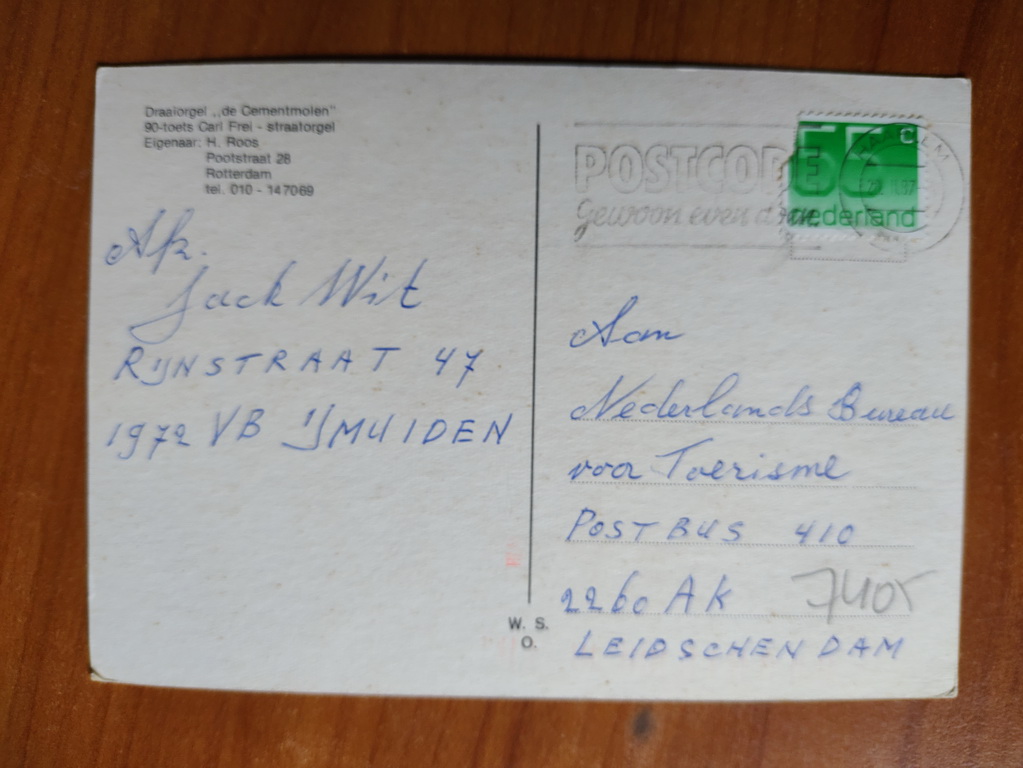 Draaiorgel „de Cementmolen"
90-toets Carl Frei - straatorgel
Eigenaar: H. Roos
Pootstraat 28
Rotterdam
tel. 010 - 147069
Afz.
Jack Wit
RIJNSTRAAT 47
1972 VB IJMUIDEN
W. S.
O.
POSTCODE
Gewoon even doen
55 c
nederland
Aan
Nederlands Bureau
voor Toerisme
POSTBUS 410
2260 AK
7405
LEIDSCHENDAM